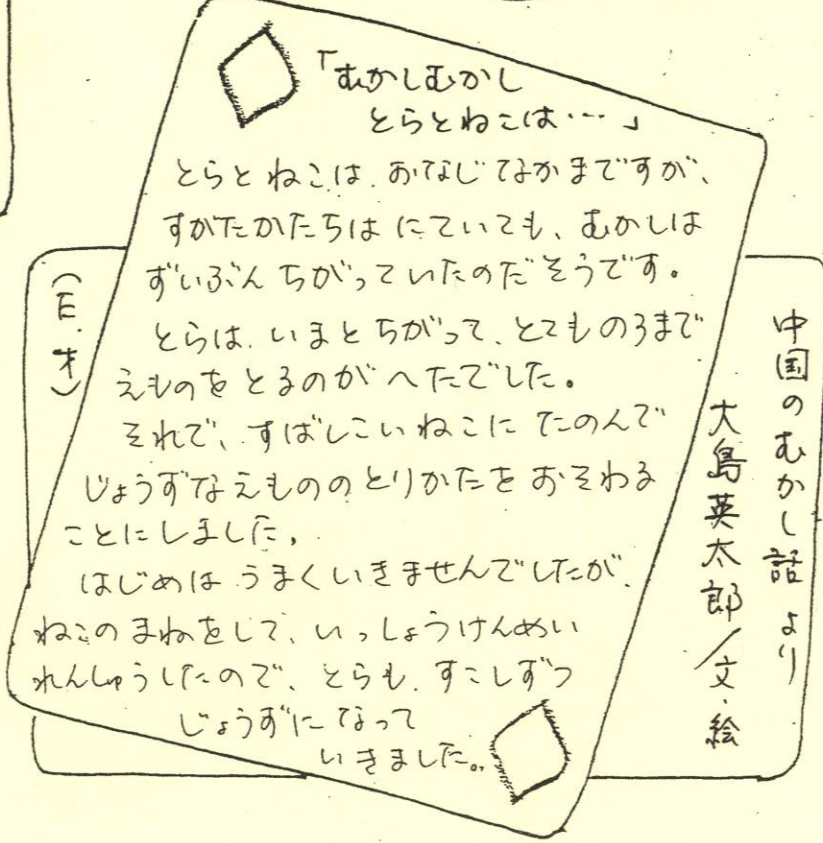 「むかしむかし
とらとねこは…」
とらとねこは、おなじなかまですが、
すがたかたちはにていても、むかしは
ずいぶんちがっていたのだそうです。
とらは、いまとちがって、とてものろまで
えものをとるのがへたでした。
それで、すばしこいねこにたのんで
じょうずなえもののとりかたをおそわる
ことにしました。
はじめはうまくいきませんでしたが、
ねこのまねをして、いっしょうけんめい
れんしゅうしたので、とらも、すこしずつ
じょうずになって
いきました。。
中国のむかし話より
大島英太郎／文・絵
(E.オ)